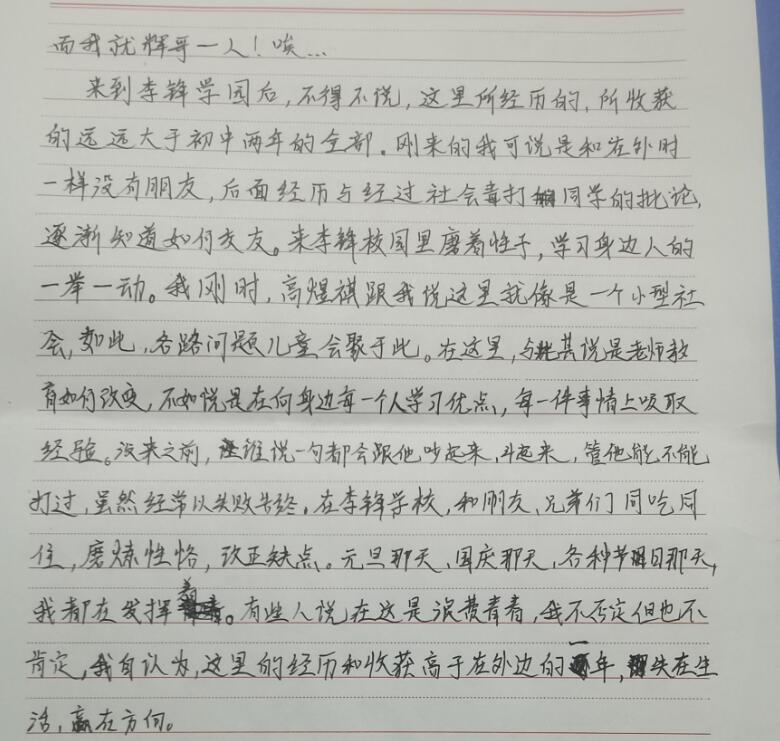 而我就辉哥一人！唉...
来到李锋学园后，不得不说，这里所经历的，所收获
的远远大于初中两年的全部。刚来的我可说是和在外时
一样没有朋友，后面经历与经过社会毒打同学的批论，
逐渐知道如何交友。来李锋校园里磨着性子，学习身边人的
一举一动。我刚时，高煜祺跟我说这里就像是一个小型社
会，如此，各路问题儿童会聚于此。在这里，与其说是老师教
育如何改变，不如说是在向身边每一个人学习优点，每一件事情上吸取
经验。没来之前，谁说一句都会跟他吵起来，斗起来，管他能不能
打过，虽然经常以失败告终。在李锋学校，和朋友、兄弟们同吃同
住，磨炼性恪，改正缺点。元旦那天、国庆那天，各种节日那天，
我都在发挥着。有些人说在这是浪费青春，我不否定但也不
肯定，我自认为，这里的经历和收获高于在外边的一年，失在生
活，赢在方向。